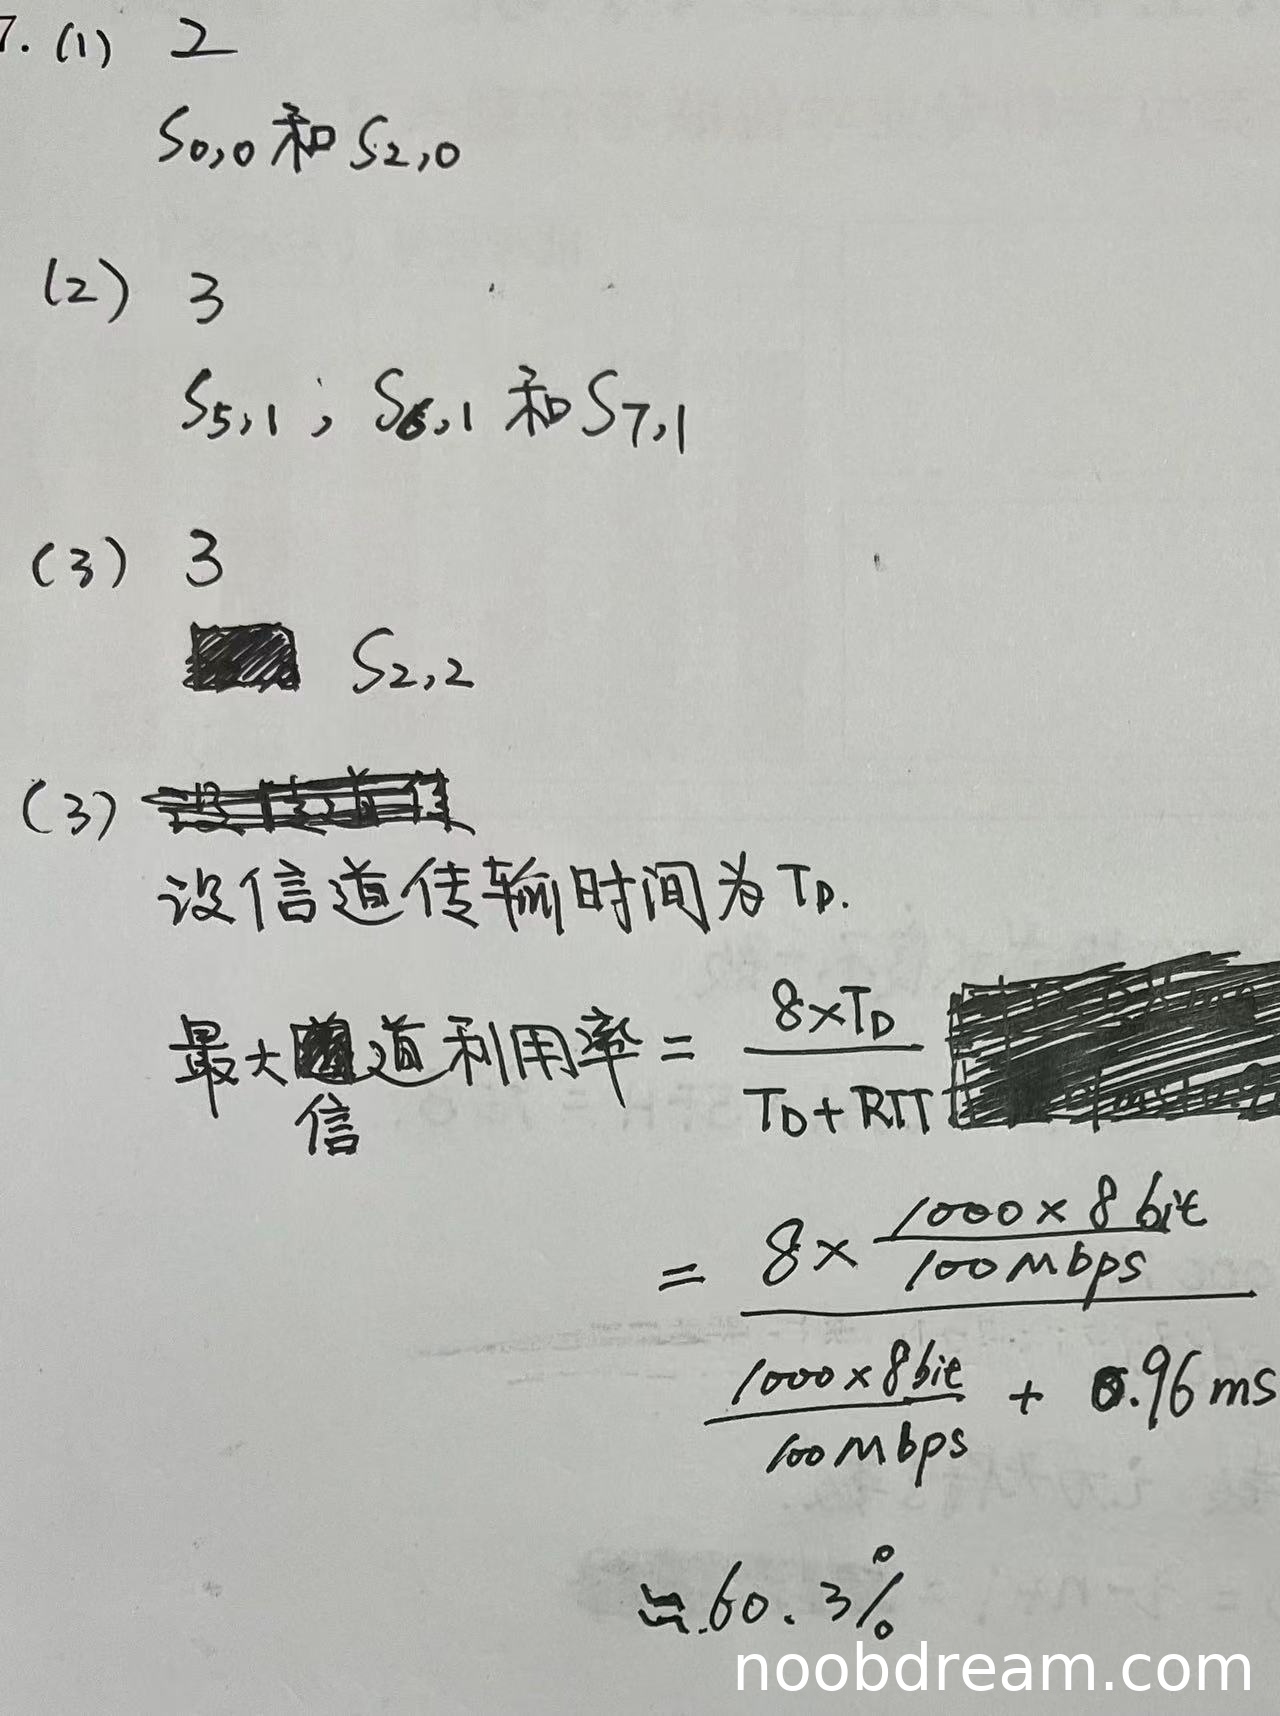 7. (1) 2
S0,0 和 S2,0
(2) 3
S5,1 ; S6,1 和 S7,1
(3) 3
S2,2
(3)
设信道传输时间为 TD.
最大信道利用率 = 8×TD / TD + RTT
= 8 × 1000 × 8 bit / 100 Mbps / 1000 × 8 bit / 100 Mbps + 0.96 ms
≈ 60.3%
noobdream.com